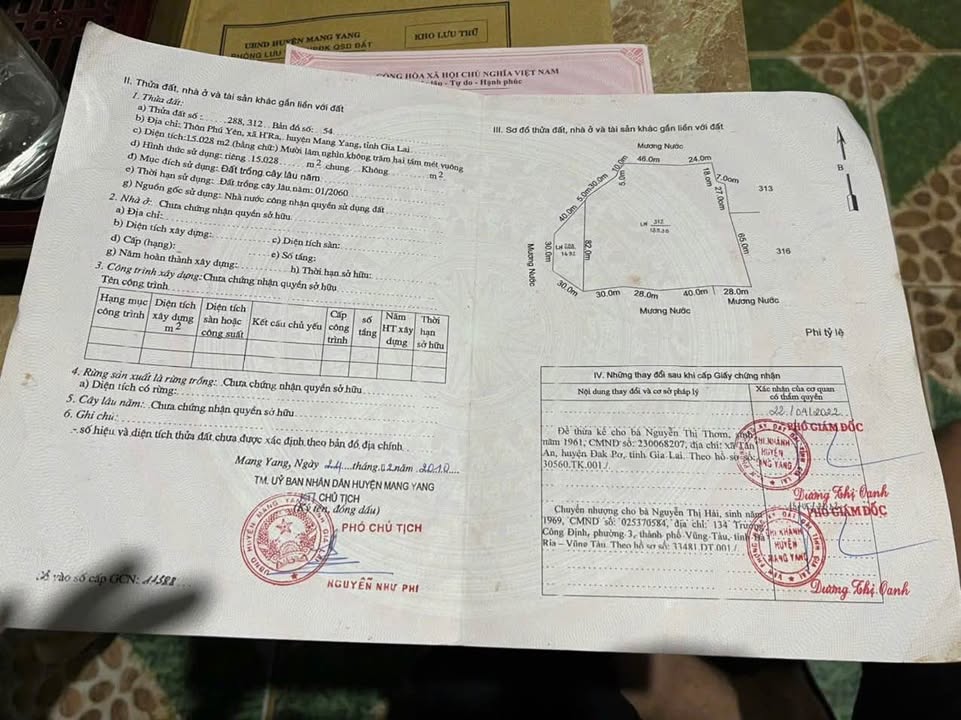 UBND HUYỆN MANG YANG
KHO LƯU TRỮ
PHÒNG LƯU
ĐK QSD ĐẤT
CỘNG HÒA XÃ HỘI CHỦ NGHĨA VIỆT NAM
Tự do - Hạnh phúc
II. Thửa đất, nhà ở và tài sản khác gắn liền với đất
1. Thửa đất:
a) Thửa đất số : 288, 312 Bản đồ số: 54
b) Địa chỉ: Thôn Phú Yên, xã H'Ra, huyện Mang Yang, tỉnh Gia Lai
c) Diện tích: 15.028 m2 (bằng chữ:) Mười lăm nghìn không trăm hai tám mét vuông
d) Hình thức sử dụng: riêng 15.028 m2 chung Không m2
đ) Mục đích sử dụng: Đất trồng cây lâu năm
e) Thời hạn sử dụng: Đất trồng cây lâu năm: 01/2060
g) Nguồn gốc sử dụng: Nhà nước công nhận quyền sử dụng đất
2. Nhà ở: Chưa chứng nhận quyền sở hữu
a) Địa chỉ:
b) Diện tích xây dựng: c) Diện tích sàn:
d) Cấp (hạng): e) Số tầng:
g) Năm hoàn thành xây dựng: h) Thời hạn sở hữu:
3. Công trình xây dựng: Chưa chứng nhận quyền sở hữu
Tên công trình
Hạng mục công trình Diện tích xây dựng m2 Diện tích sàn hoặc công suất Kết cấu chủ yếu Cấp công trình số tầng Năm HT xây dựng Thời hạn sở hữu
4. Rừng sản xuất là rừng trồng: Chưa chứng nhận quyền sở hữu
a) Diện tích có rừng:
5. Cây lâu năm: Chưa chứng nhận quyền sở hữu
6. Ghi chú:
- số hiệu và diện tích thửa đất chưa được xác định theo bản đồ địa chính
Mang Yang, Ngày 24 tháng 02 năm 2010
TM. UỶ BAN NHÂN DÂN HUYỆN MANG YANG
KT CHỦ TỊCH
(Ký tên, đóng dấu)
PHÓ CHỦ TỊCH
NGUYỄN NHƯ PHI
Số vào sổ cấp GCN: 11588
III. Sơ đồ thửa đất, nhà ở và tài sản khác gắn liền với đất
Mương Nước
46.0m 24.0m
10.0m
5.0m
30.0m
5.0m
40.0m
18.0m
7.0m
27.00m
313
B
LN 312
Mương Nước
30.0m
LN
82.0m
65.0m
316
30.0m
30.0m 28.0m 40.0m 28.0m
Mương Nước
Mương Nước
Phi tỷ lệ
IV. Những thay đổi sau khi cấp Giấy chứng nhận
Nội dung thay đổi và cơ sở pháp lý
Xác nhận của cơ quan có thẩm quyền
22/04/2022
PHÓ GIÁM ĐỐC
Để thừa kế cho bà Nguyễn Thị Thơm, sinh
năm 1961, CMND số: 230668207, địa chỉ: xã Tân
An, huyện Đak Pơ, tỉnh Gia Lai. Theo hồ sơ số:
30560.TK.001./.
CHI NHÁNH
HUYỆN
MANG YANG
Dương Thị Oanh
PHÓ GIÁM ĐỐC
Chuyển nhượng cho bà Nguyễn Thị Hải, sinh năm
1969, CMND số: 025370584, địa chỉ: 134 Trương
Công Định, phường 3, thành phố Vũng Tàu, tỉnh Bà
Rịa – Vũng Tàu. Theo hồ sơ số: 33481.DT.001./.
CHI NHÁNH
HUYỆN
MANG YANG
Dương Thị Oanh